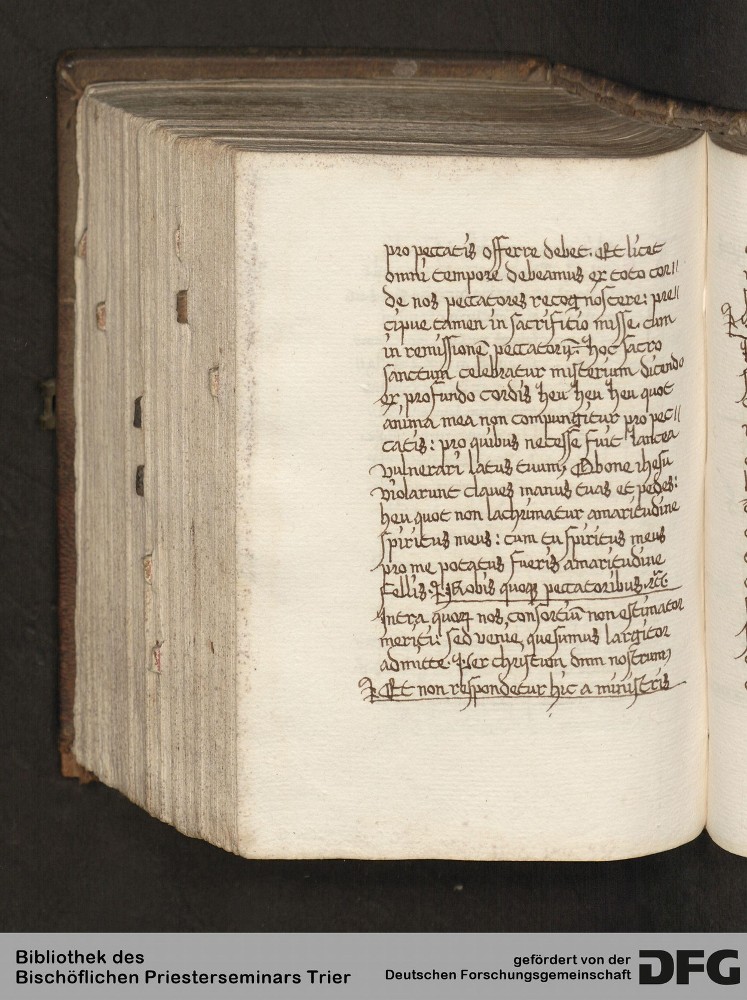 pro peccatis offerre debet. Et licet
omni tempore debeamus ex toto cor//
de nos peccatores recognoscere: pre//
cipue tamen in sacrificio misse. cum
in remissionē peccatorū: hoc sacro
sanctum celebratur misterium dicendo
ex profundo cordis heu heu heu quot
anima mea non compungitur pro pec//
catis: pro quibus necesse fuit lancea
vulnerari latus tuum, O bone ihesu
violarunt claves manus tuas et pedes:
heu quot non lachrimatur amaritudine
spiritus meus: cum tu spiritus meus
pro me potatus fueris amaritudine
fellis. Nobis quoqȝ peccatoribus. ⁊c̄.
Intra quorū nos consortiū non estimator
meriti: sed venie quesumus largitor
admitte. Per christum dnm nostrum,
Et non respondetur hic a ministris
Bibliothek des
Bischöflichen Priesterseminars Trier
gefördert von der
Deutschen Forschungsgemeinschaft
DFG